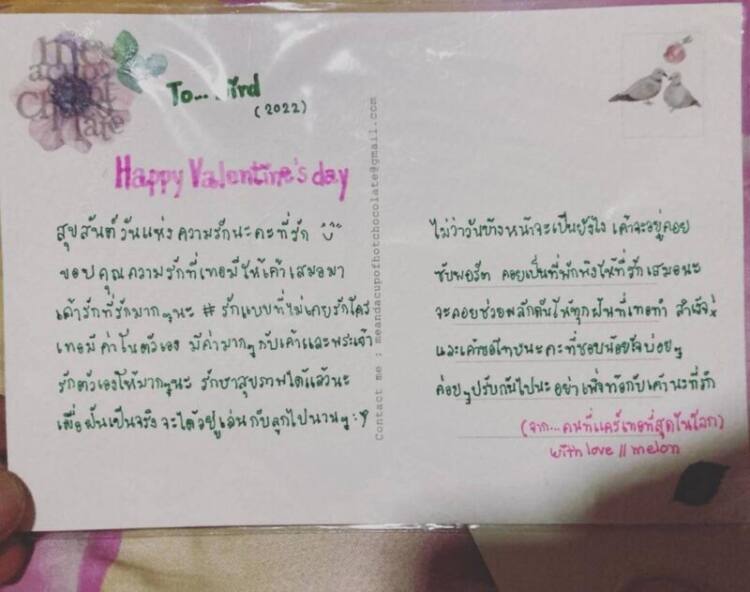 me
a cup
of
Chocolate
To... Bird
(2022)
Happy Valentine's day
สุขสันต์วันแห่งความรักนะคะที่รัก
ขอบคุณความรักที่เทอมีให้เค้าเสมอมา
เค้ารักที่รักมากๆนะ # รักแบบที่ไม่เคยรักใคร
เทอมีค่าในตัวเอง มีค่ามากๆกับเค้าและพระเจ้า
รักตัวเองให้มากๆนะ รักษาสุขภาพได้แล้วนะ
เผื่อฝันเป็นจริงจะได้อยู่เล่นกับลูกไปนานๆ :)
Contact me at : meandacupofhotchocolate@gmail.com
ไม่ว่าวันข้างหน้าจะเป็นยังไง เค้าจะอยู่คอย
ซับพอร์ต คอยเป็นที่พักพิงให้ที่รักเสมอนะ
จะคอยช่วยผลักดันให้ทุกฝันที่เทอทำ สำเร็จ
และเค้าขอโทษนะคะที่ชอบน้อยใจบ่อยๆ
ค่อยๆปรับกันไปนะ อย่าเพิ่งท้อกับเค้านะที่รัก
(จาก...คนที่แคร์เทอที่สุดในโลก)
with love // melon